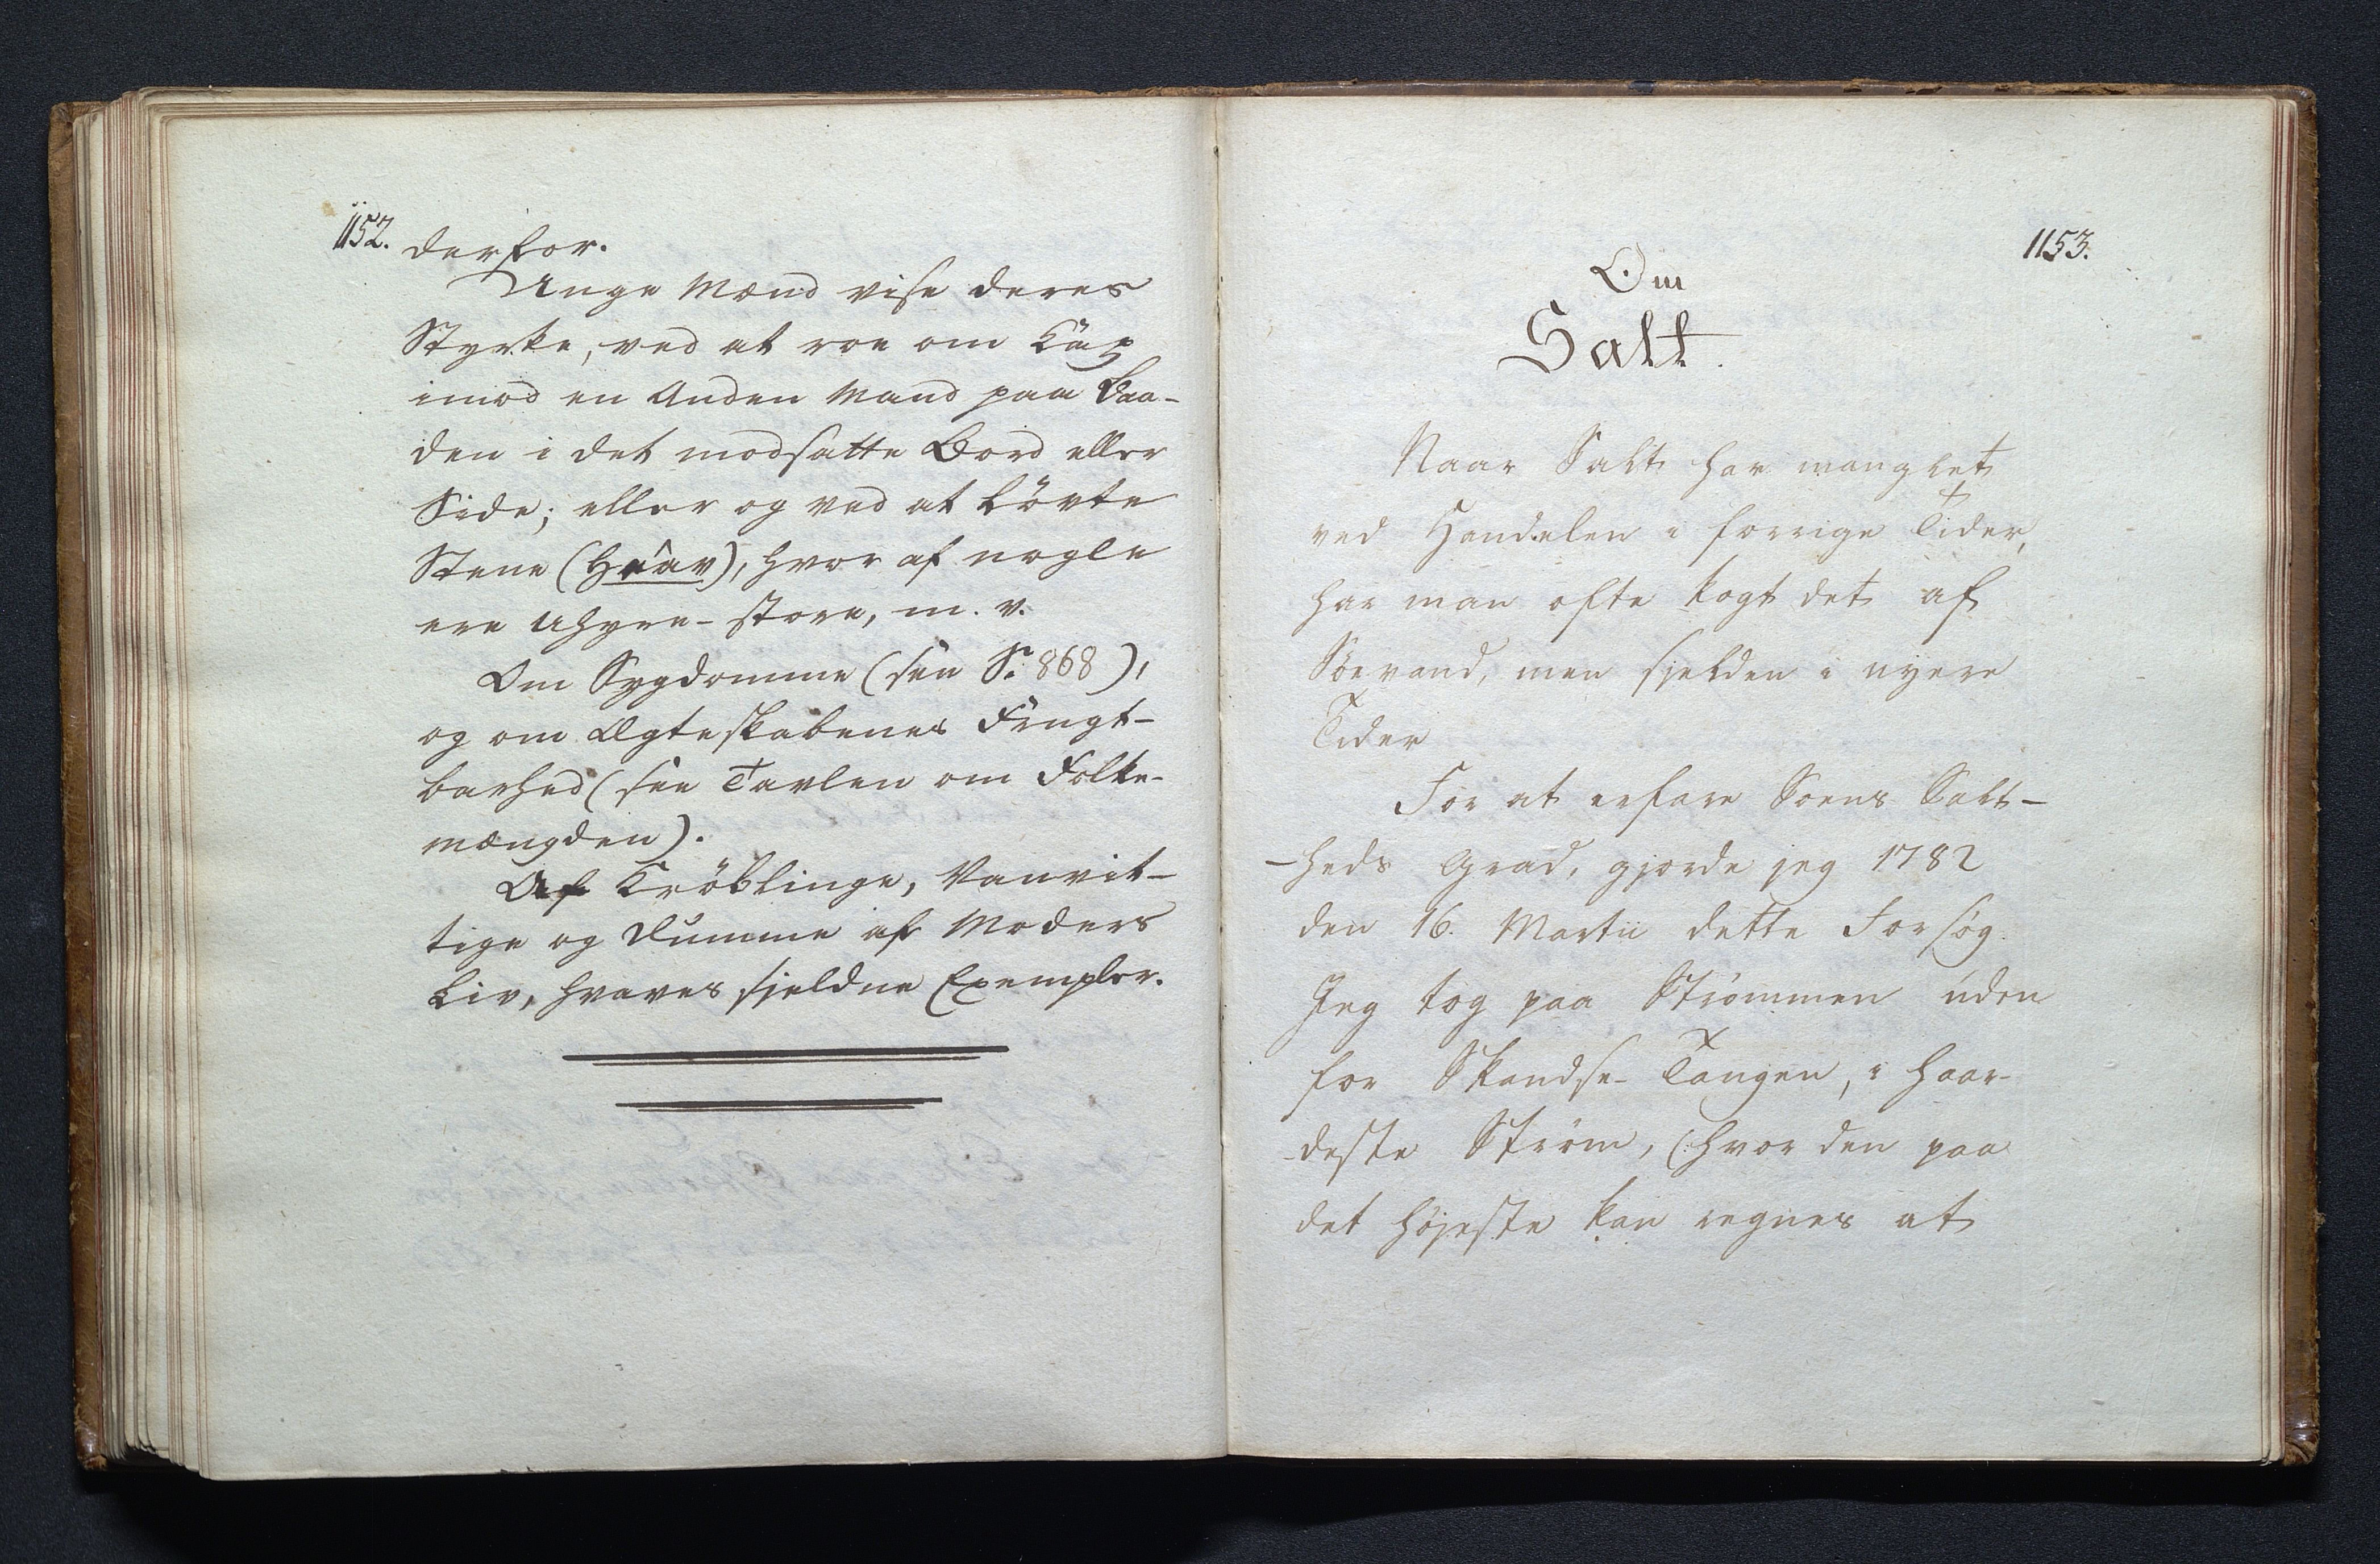 1152.
derfor.
Unge Mænd vise deres
Styrke, ved at roe om Kap
imod en Anden Mand paa Baa-
den i det modsatte Bord eller
Side; eller og ved at lövte
Stene, hvor af nogle
ere uhyre-store, m. v.
Om Sygdomme (see S. 868),
og om Ægteskabenes Frugt-
barhed (see Tavlen om Folke-
mængden).
Af Kröblinge, Vanvit-
tige og Dumme af Moders
Liv, haves sjeldne Exempler.
1153.
Om
Salt.
Naar Salt har manglet
ved Handelen i forrige Tider,
har man ofte kogt det af
Söevand, men sjelden i nyere
Tider
For at erfare Soens Salt-
-heds Grad, gjorde jeg 1782
den 16. Martii dette Forsøg.
Jeg tog paa Strømmen uden
for Skandse-Tangen, i haar-
deste Strøm, (hvor den paa
det højeste kan regnes at